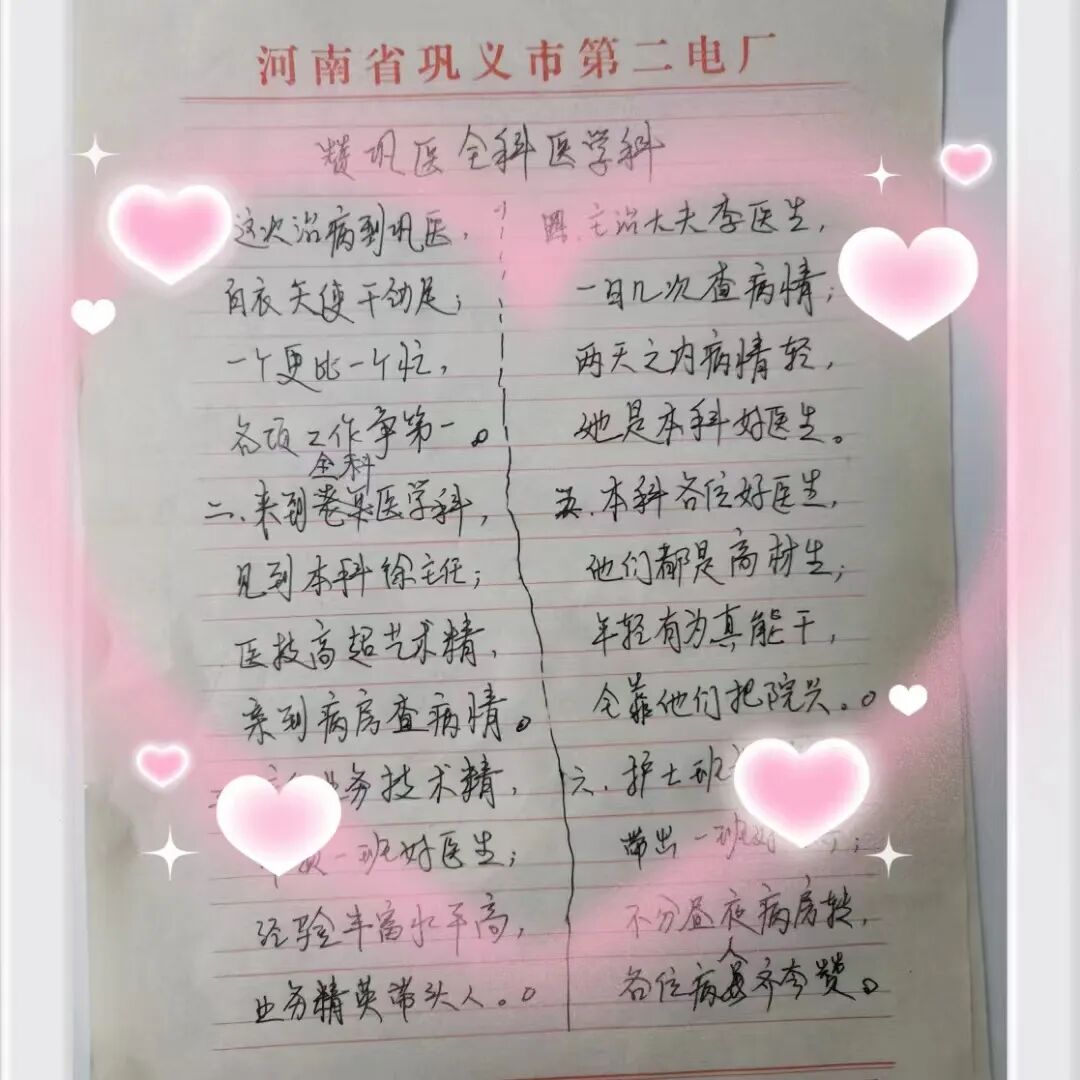 河南省巩义市第二电厂
赞巩医全科医学科
这次治病到巩医，
白衣天使干劲足；
一个更比一个忙，
各项工作争第一。
全科
二、来到老年医学科，
见到本科徐主任；
医技高超艺术精，
亲到病房查病情。
业务技术精，
一班好医生；
经验丰富水平高，
业务精英带头人。
四、主治大夫李医生，
一日几次查病情；
两天之内病情轻，
她是本科好医生。
五、本科各位好医生，
他们都是高材生；
年轻有为真能干，
全靠他们把院兴。
六、护士班
带出一班好
不分昼夜病房转，
人
各位病齐夸赞。